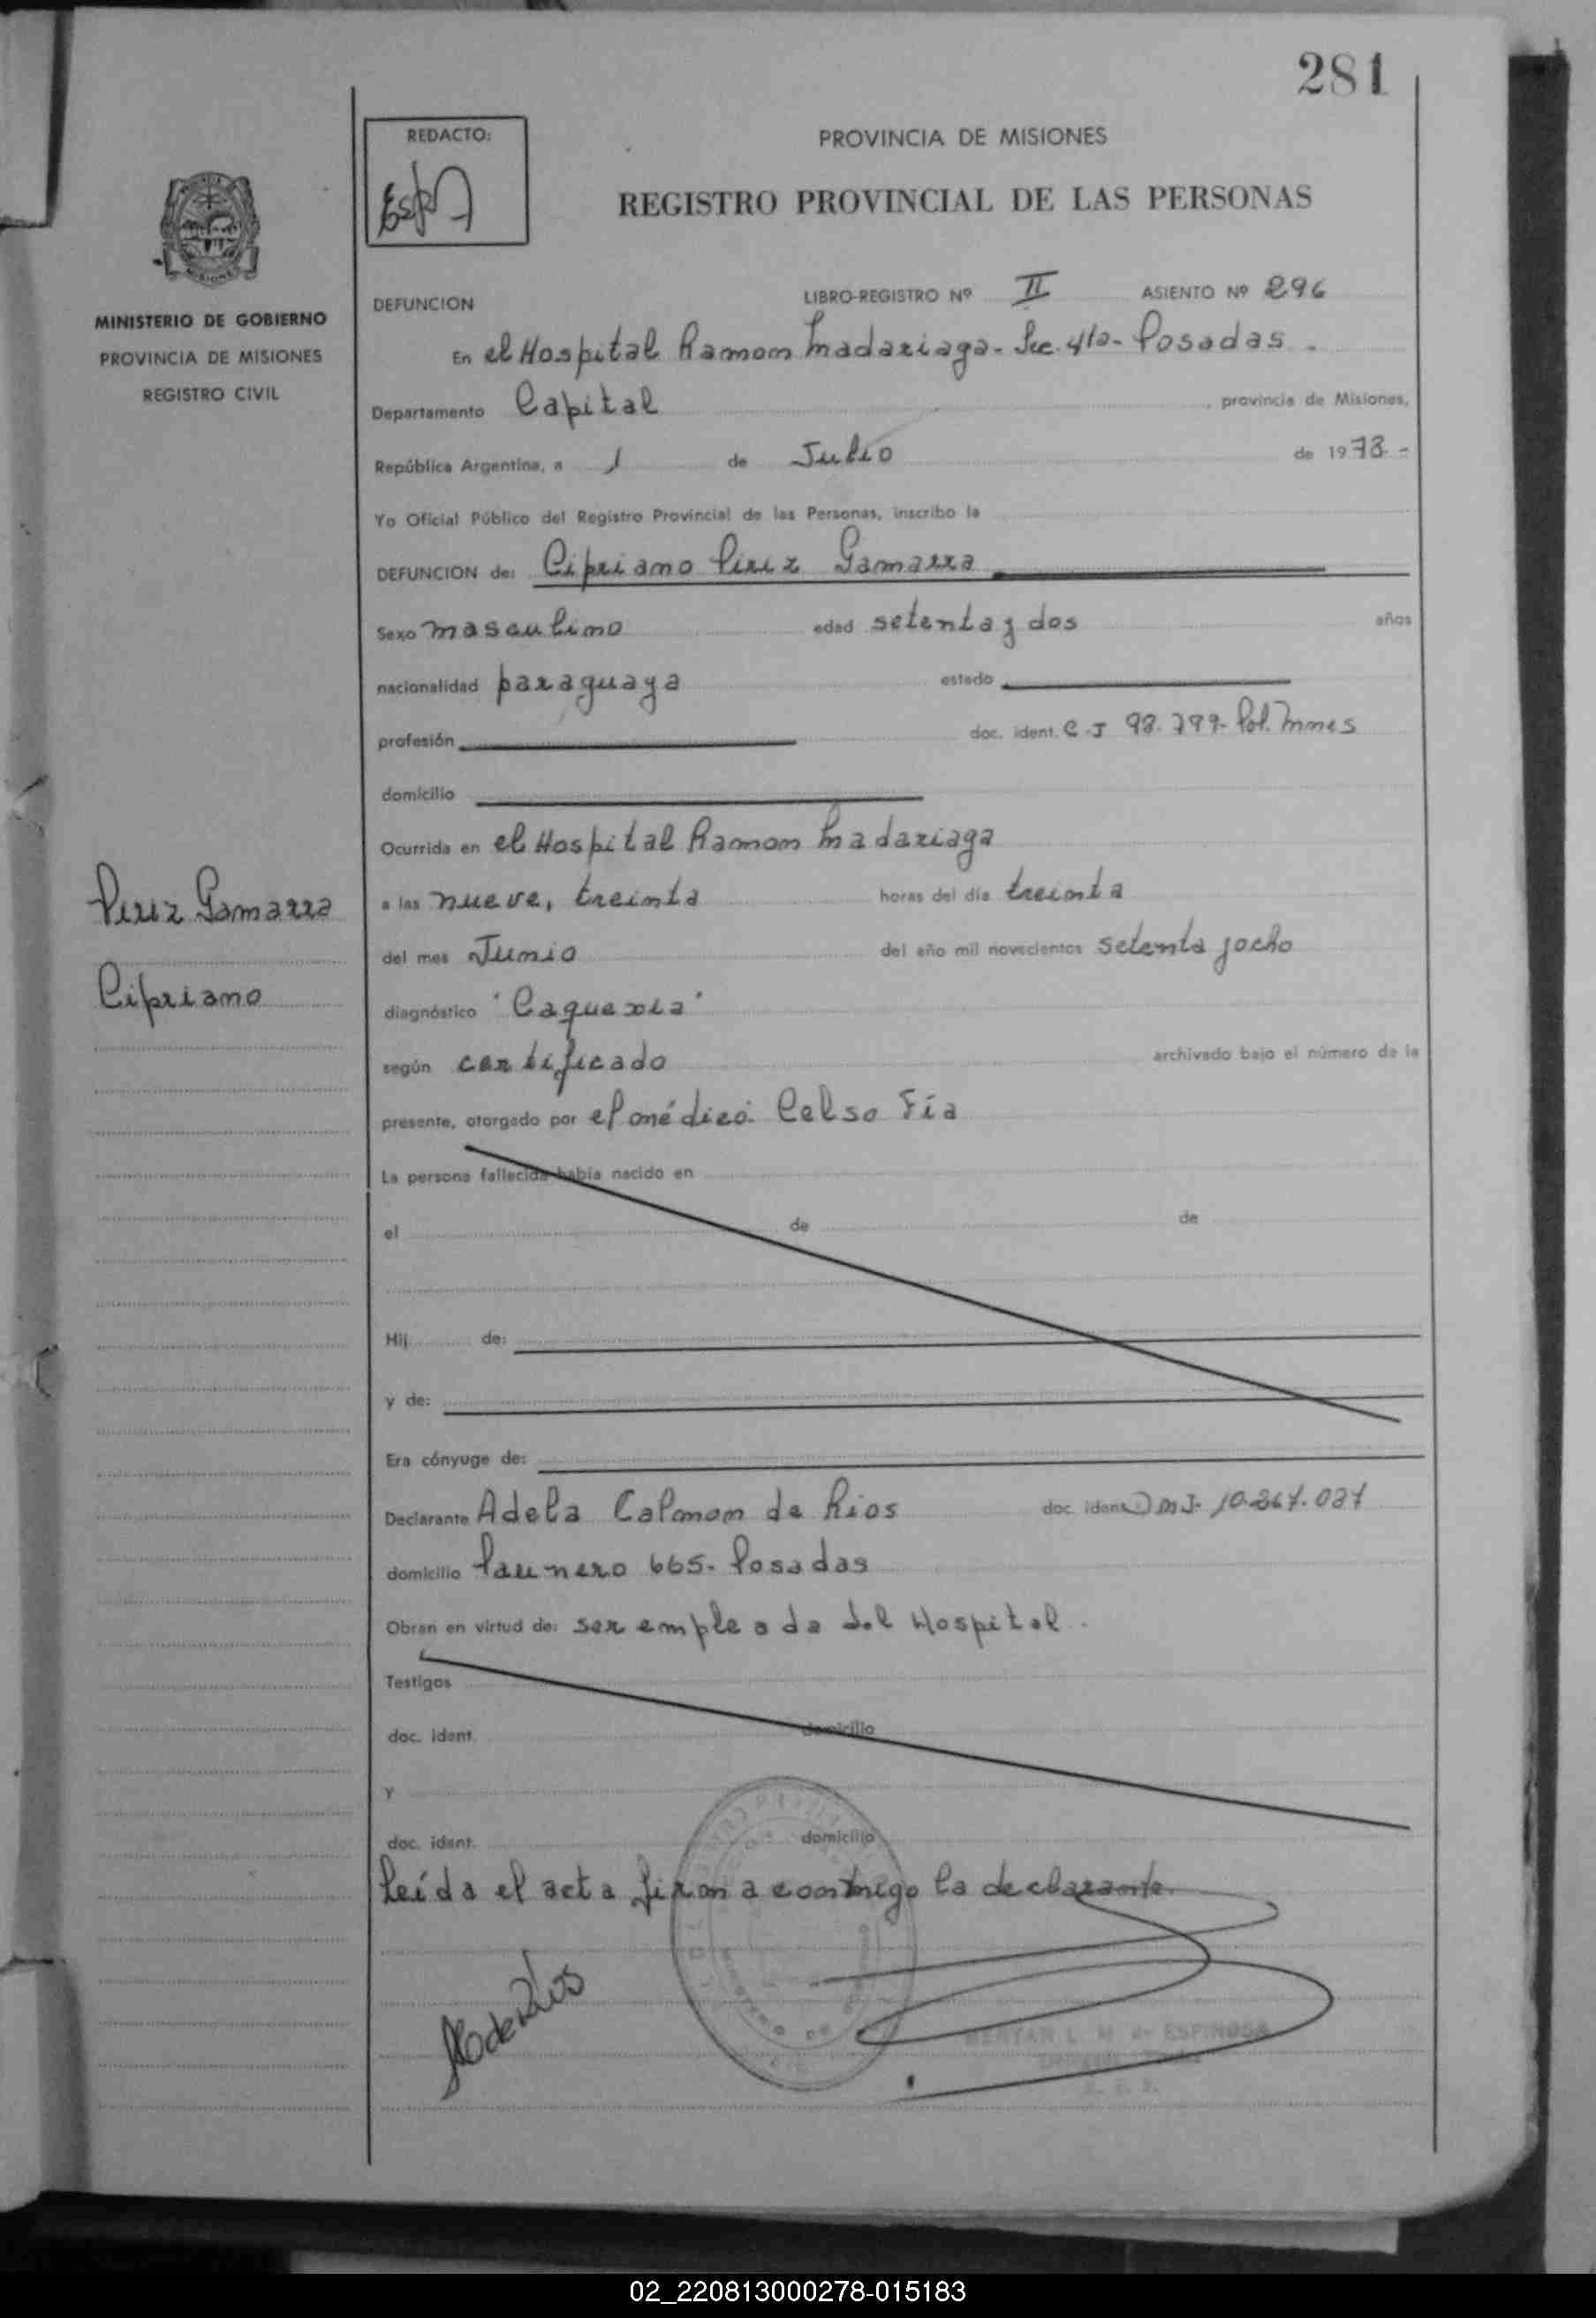 281
REDACTO:
PROVINCIA DE MISIONES
REGISTRO PROVINCIAL DE LAS PERSONAS
MISIONES
MINISTERIO DE GOBIERNO
PROVINCIA DE MISIONES
REGISTRO CIVIL
DEFUNCION LIBRO-REGISTRO Nº II ASIENTO Nº 296
En el Hospital Ramon Madariaga - Sec. 4ta - Posadas.
Departamento Capital, provincia de Misiones,
República Argentina, a 1 de Julio de 1978.-
Yo Oficial Público del Registro Provincial de las Personas, inscribo la
DEFUNCION de: Cipriano Pirez Gamarra
Sexo masculino edad setenta y dos años
nacionalidad paraguaya estado
profesión doc. ident. C.I 98.799- Pol. Mnes
domicilio
Ocurrida en el Hospital Ramon Madariaga
a las nueve, treinta horas del día treinta
del mes Junio del año mil novecientos setenta y ocho
diagnóstico "Caquexia"
según certificado archivado bajo el número de la
presente, otorgado por el médico: Celso Fía
La persona fallecida había nacido en
el de de
Hij de:
y de:
Era cónyuge de:
Declarante Adela Colman de Rios doc. ident. D.N.I. 10.267.027
domicilio Paunero 665. Posadas
Obran en virtud de: ser empleada del Hospital.
Testigos
doc. ident. domicilio
y
doc. ident. domicilio
Leída el acta firma conmigo la declarante.
Pirez Gamarra
Cipriano
L. M. de ESPINOSA
02_220813000278-015183